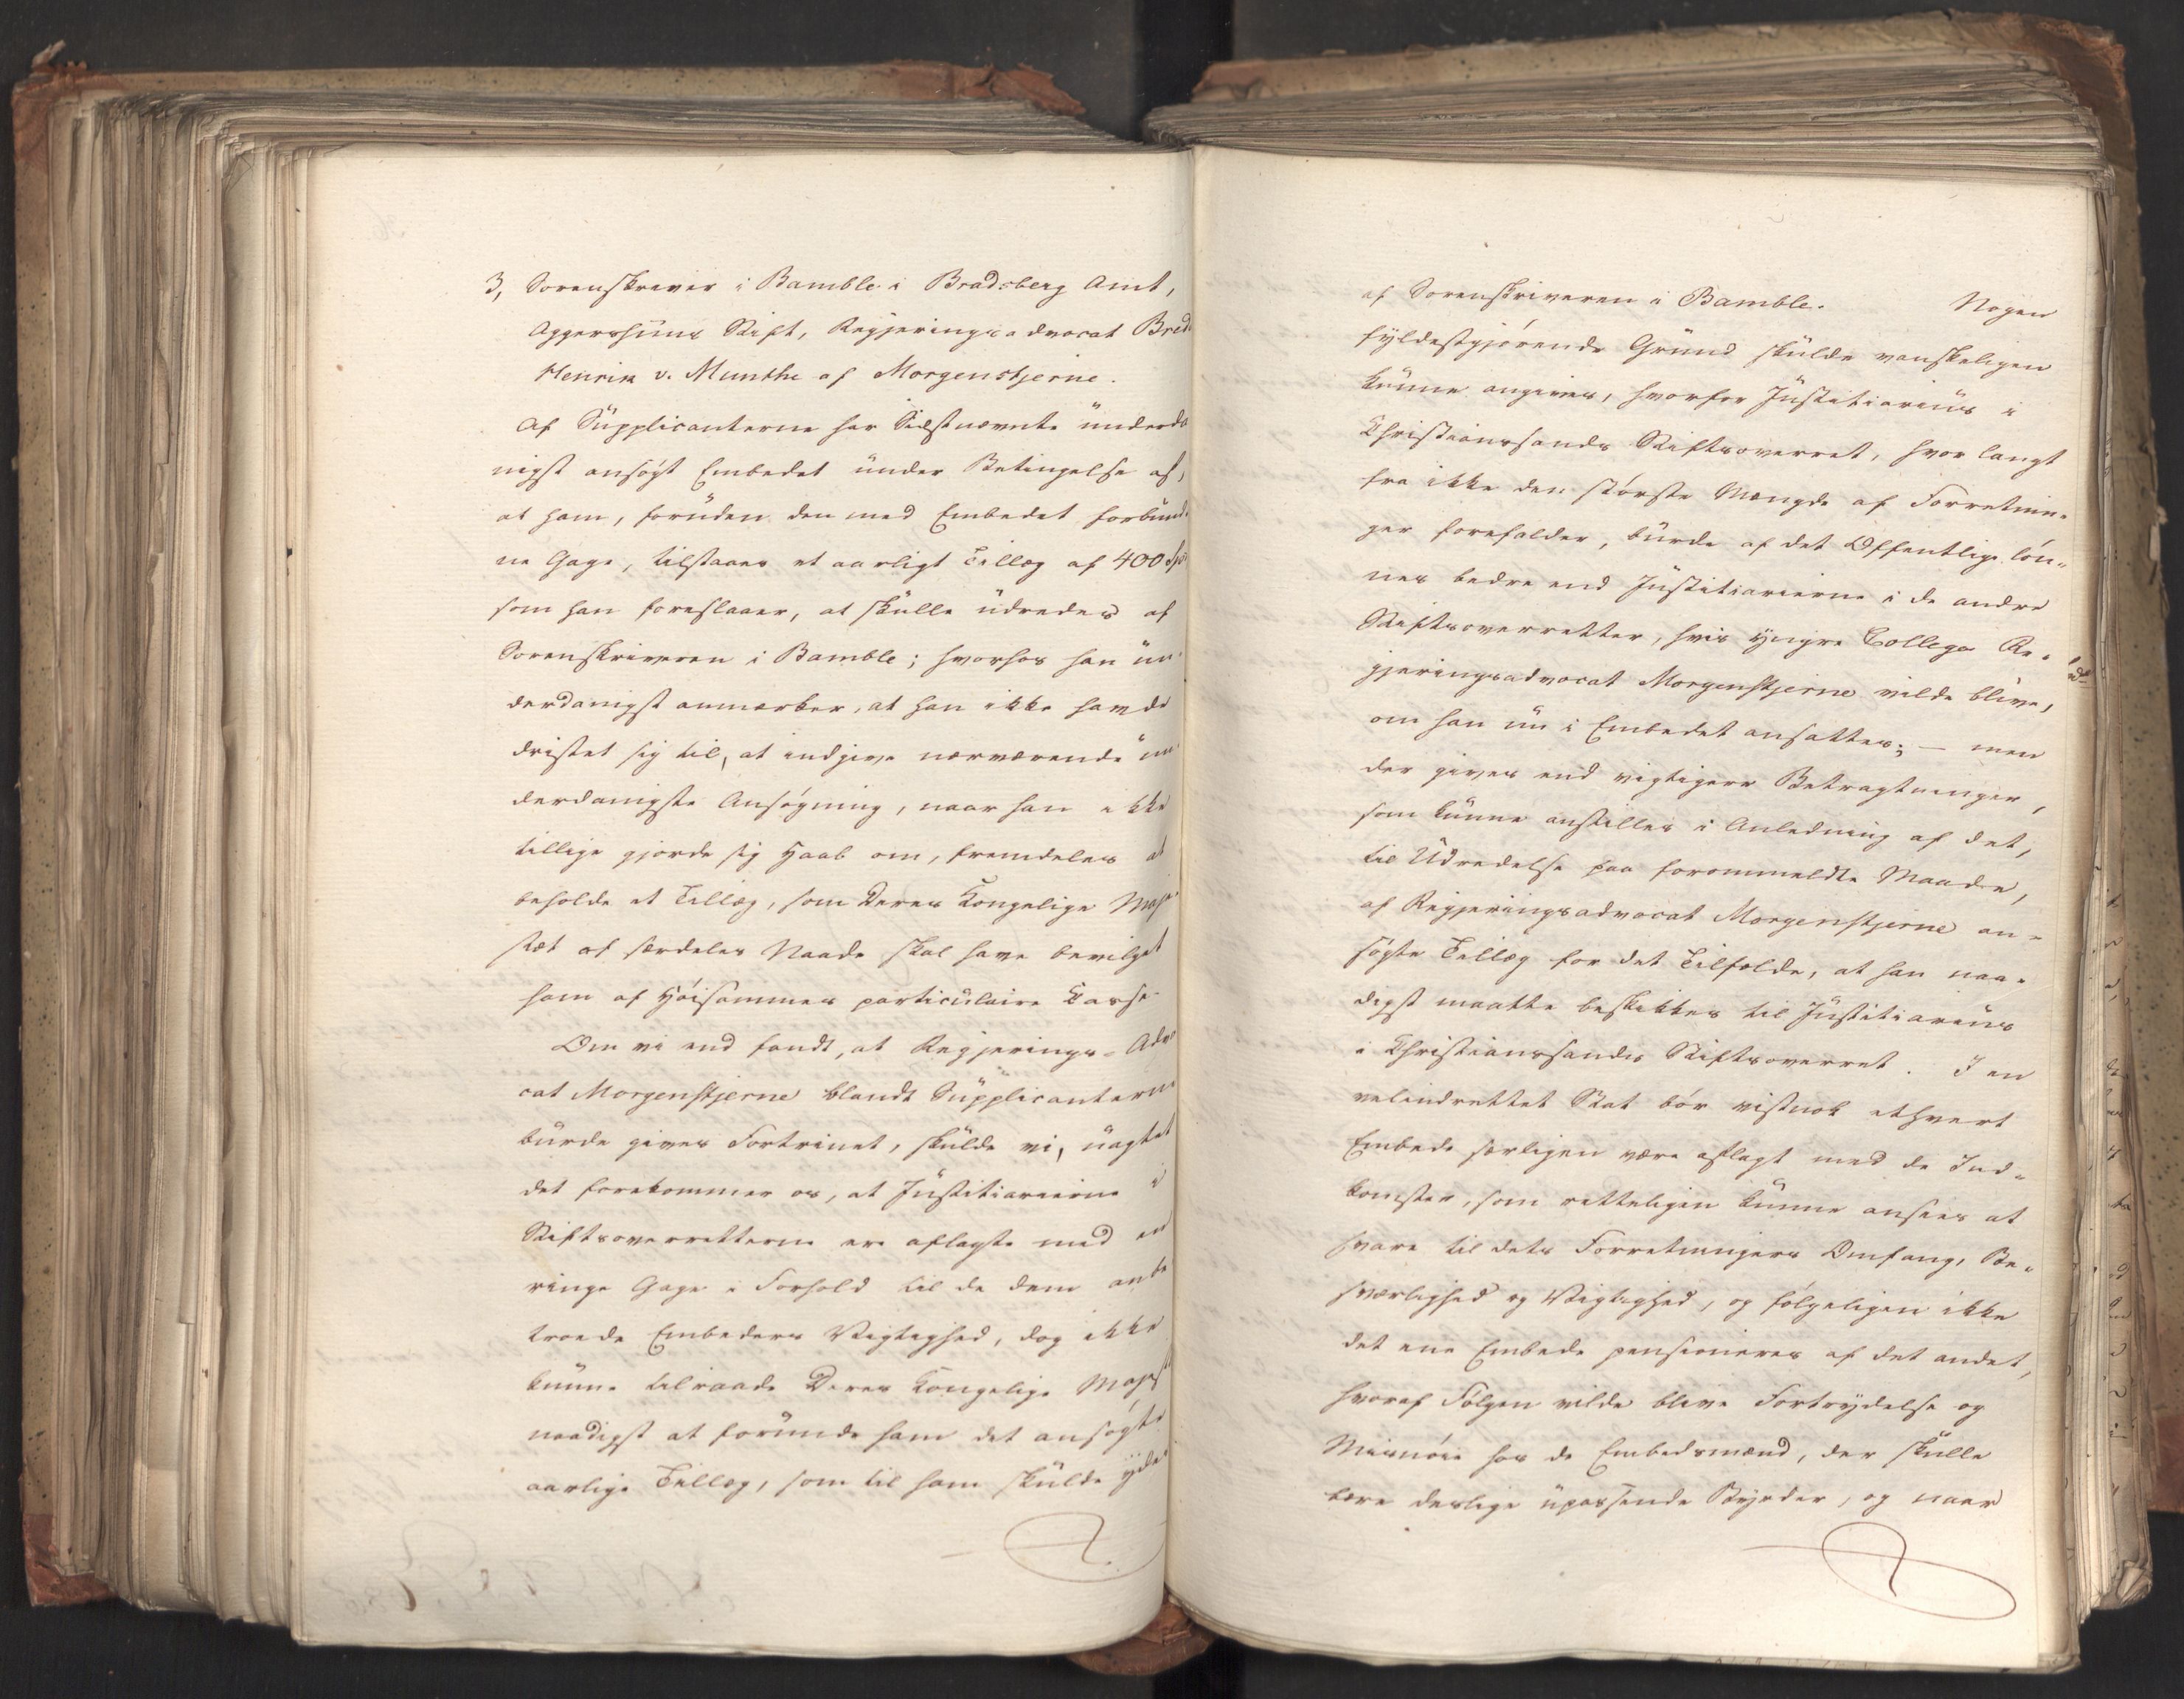 3, Sorenskriver i Bamble i Bradsberg Amt,
Aggershuus Stift, Regjeringsadvocat Bredo
Henrik v. Munthe af Morgenstjerne.
Af Supplicanterne har Sidstnævnte underda
nigst ansøgt Embedet under Betingelse af,
at ham, foruden den med Embedet forbund
ne Gage, tilstaaes et aarligt Tillæg af 400 Spd
som han foreslaaer, at skulle udredes af
Sorenskriveren i Bamble; hvorhos han un-
derdanigst anmærker, at han ikke havde
dristet sig til, at indgive nærværende un-
derdanigste Ansøgning, naar han ikke
tillige gjorde sig Haab om, fremdeles at
beholde et Tillæg, som Deres Kongelige Maje
stæt af særdeles Naade skal have bevilget
ham af Høisammes particulaire Casse.
Om vi end fandt, at Regjerings-Advo
cat Morgenstjerne blandt Supplicanterne
burde gives Fortrinet, skulde vi, uagtet
det forekommer os, at Justitiarierne i
Stiftsoverretterne ere aflagte med en
ringe Gage i Forhold til de dem anbe
troede Embeders Vigtighed, dog ikke
kunne tilraade Deres Kongelige Majest
naadigst at forunde ham det ansøgte
aarlige Tillæg, som til ham skulde ydes
af Sorenskriveren i Bamble. Nogen
fyldestgjørende Grund skulde vanskeligen
kunne angives, hvorfor Justitiarius i
Christianssands Stiftsoverret, hvor langt
fra ikke den største Mængde af Forretnin-
ger forefalder, burde af det Offentlige løn-
nes bedre end Justitiarierne i de andre
Stiftsoverretter, hvis yngre Collega Re-
gjeringsadvocat Morgenstjerne vilde blive,
om han nu i Embedet ansattes; – men
der gives end vigtigere Betragtninger,
som kunne anstilles i Anledning af det,
til Udredelse paa forommeldte Maade,
af Regjeringsadvocat Morgenstjerne an-
søgte Tillæg for det Tilfælde, at han naa-
digst maatte beskikkes til Justitiarius
i Christianssands Stiftsoverret. I en
velindrettet Stat bør vistnok ethvert
Embede særligen være aflagt med de Ind-
komster, som retteligen kunne ansees at
svare til dets Forretningers Omfang, Be-
sværlighed og Vigtighed, og følgeligen ikke
det ene Embede pensioneres af det andet,
hvoraf Følgen vilde blive Fortrydelse og
Misnøie hos de Embedsmænd, der skulle
bære deslige upassende Byrder, og naar